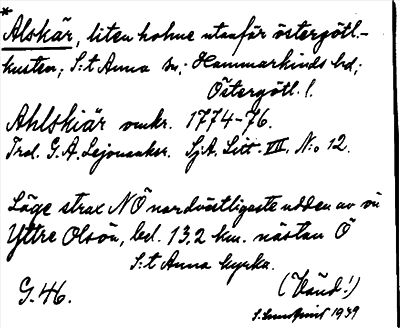 *
Alskär, liten holme utanför östergötl.-
kusten, S:t Anna sn; Hammarkinds hd;
Östergötl. l.
Ahlskiär omkr. 1774-76.
Trol. G. A. Lejonanker. SjA. Litt. VII. N:o 12.
Läge strax NÖ nordöstligaste udden av ön
Yttre Olsön, bel. 13,2 km. nästan Ö
S:t Anna kyrka.
G. 46.
(Vänd!)
S. 1939